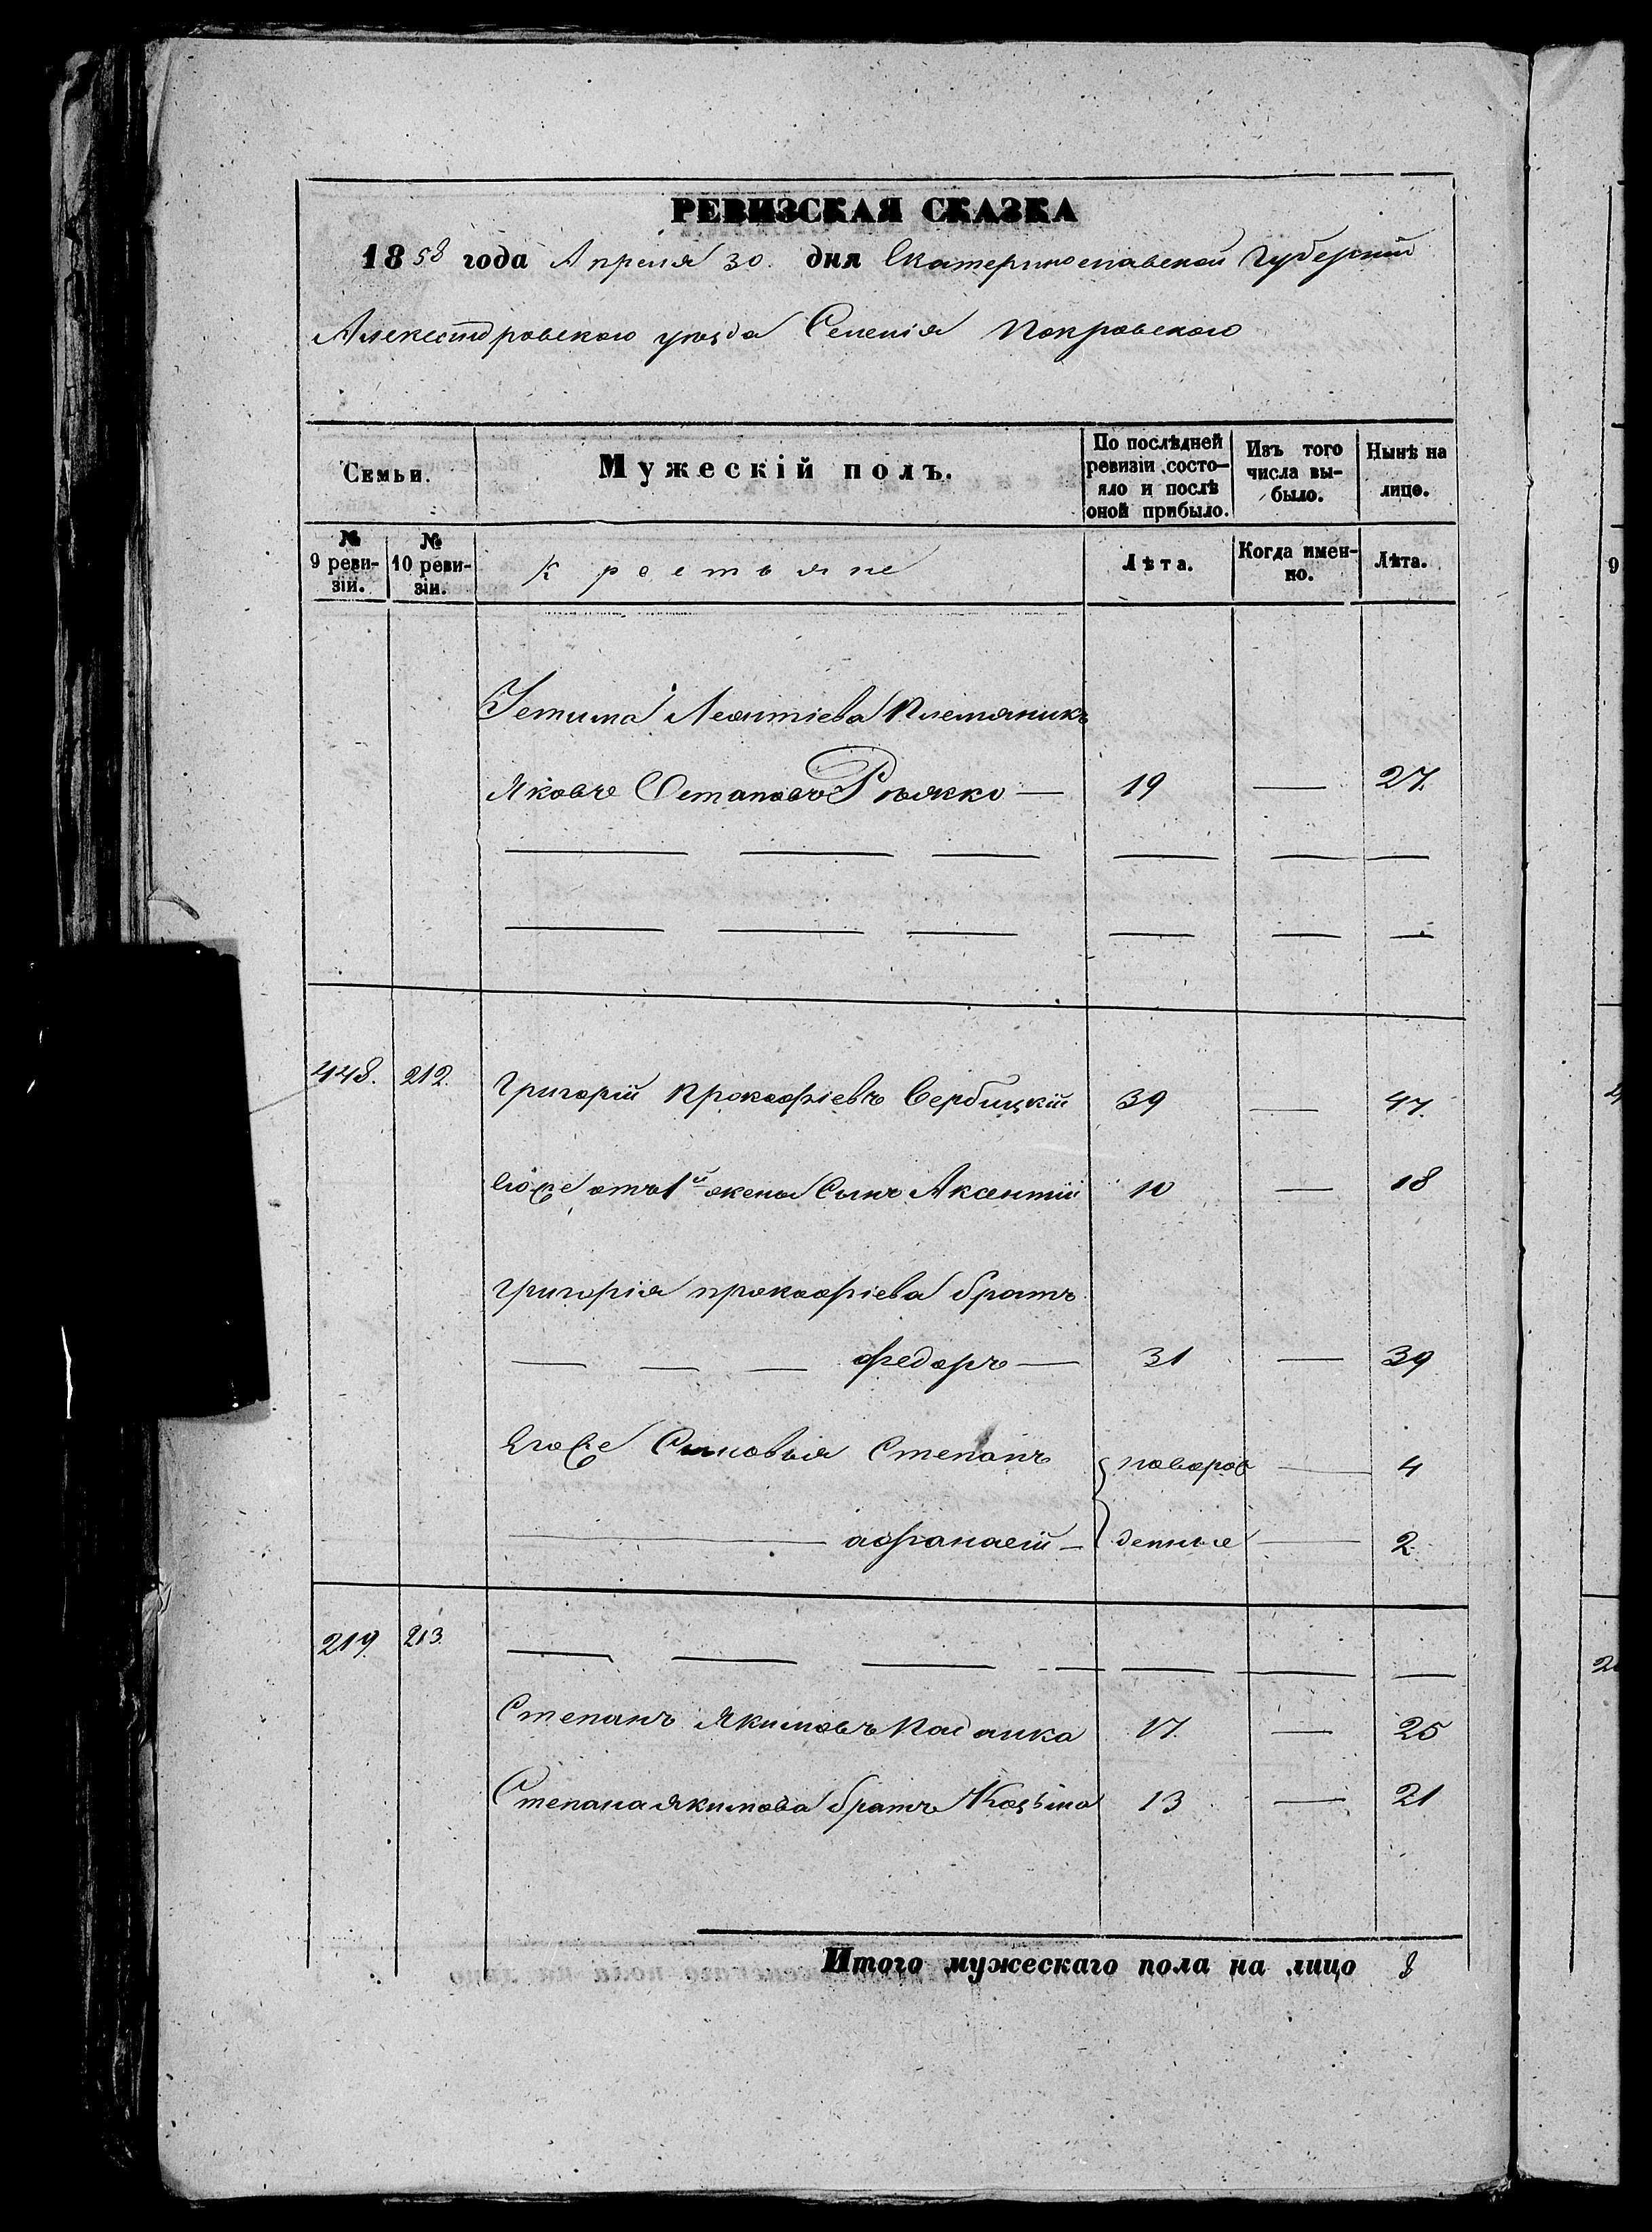 РЕВИЗСКАЯ СКАЗКА
1858 года Апреля 30. дня Екатеринославской Губерніи
Александровского уѣзда Селенія Покровского
Семьи.
Мужескій полъ.
По послѣдней ревизіи состо-
яло и послѣ оной прибыло.
Изъ того числа вы-
было.
Нынѣ на лицо.
№ 9 реви-
зіи.
№ 10 реви-
зіи.
Крестьяне
Лѣта.
Когда имен-
но.
Лѣта.
Устима Леонтіева Племяникъ
Яковъ Остаповъ — 19 — 27.
448. 212. Григорій Прокофіевъ Вербицкій 39 — 47.
Его же отъ 1й жены Сынъ Аксентій 10 — 18
Григорія прокофіева братъ
— — — федоръ — 31 — 39
Его же Сыновья Степанъ новорож — 4
— афанасій — денные — 2
219. 213. — — — — — — —
Степанъ Якимовъ 17. — 25
Степана якимова братъ Козьма 13 — 21
Итого мужескаго пола на лицо 8
9